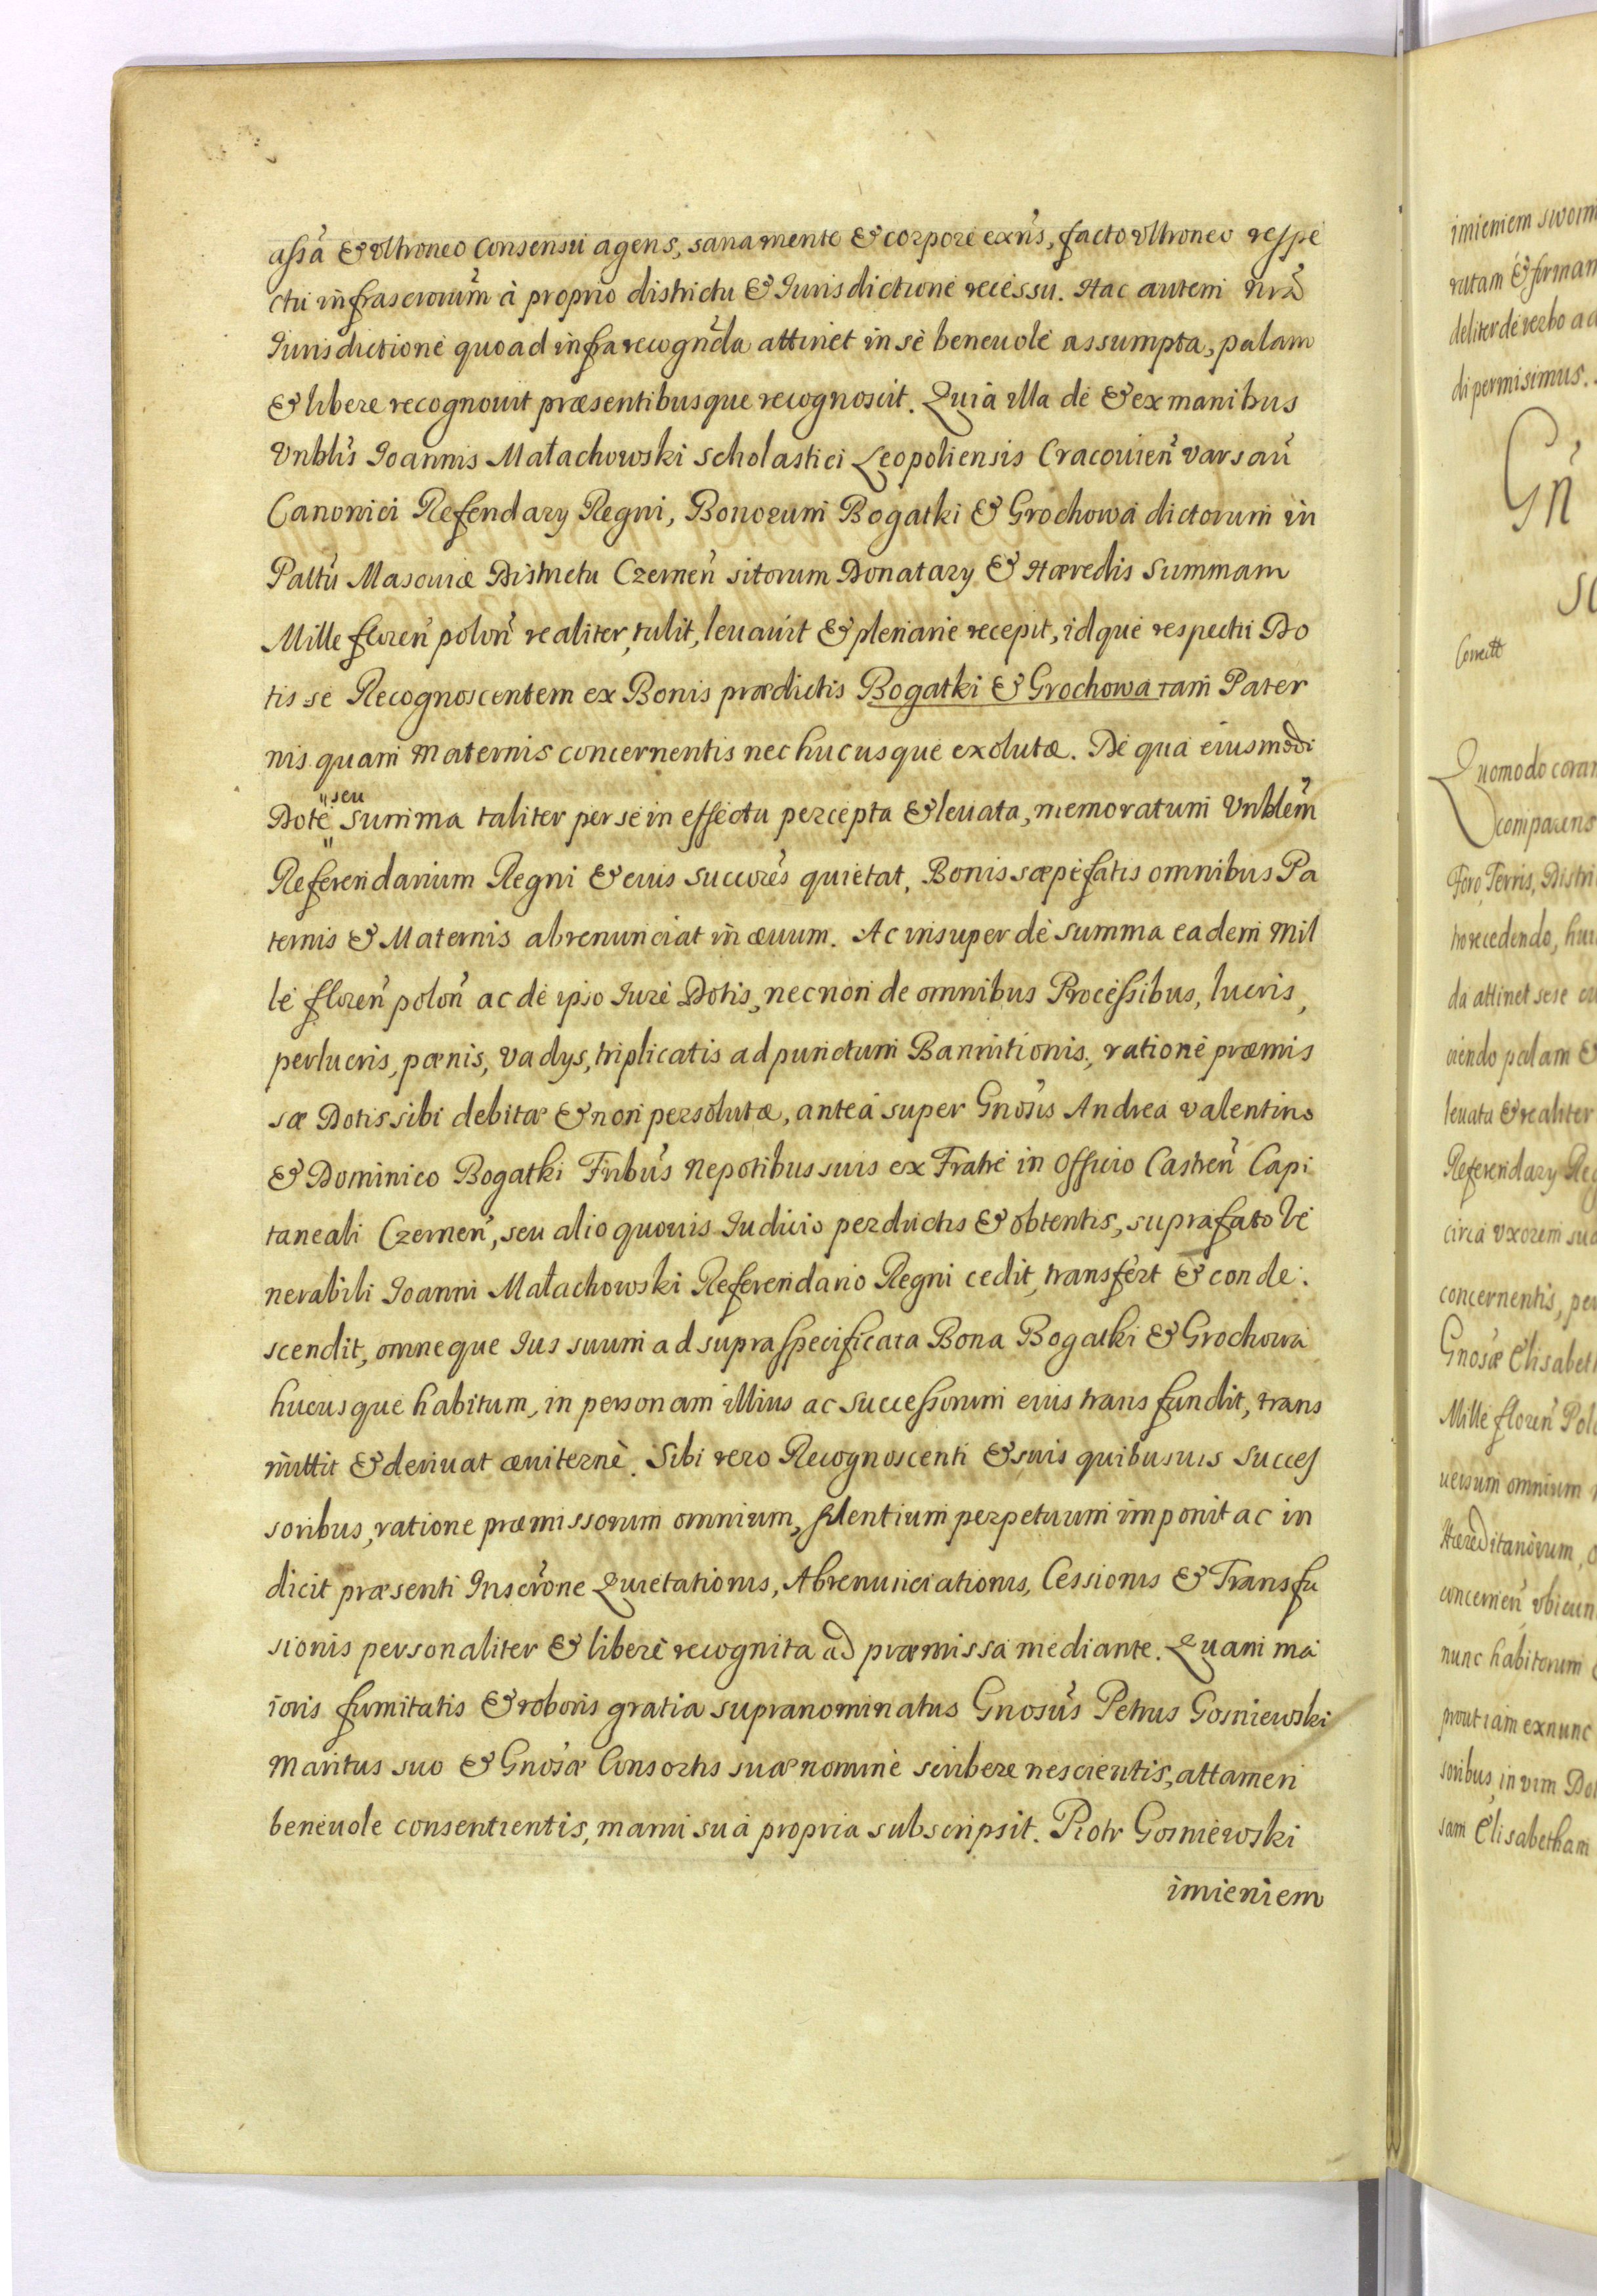 assã & vltroneo consensu agens, sana mente & corpore exñs, facto vltroneo respe
ctu infrascrorum̃ à proprio districtu & Iurisdictione recessu. Hac autem nrã
Iurisdictione quoad infra recogñda attinet in se beneuole assumpta, palam
& libere recognouit præsentibusque recognoscit. Quia illa de & ex manibus
Vnblis̃ Ioannis Małachowski Scholastici Leopoliensis Cracouien̄ Varsau̇
Canonici Refendary Regni, Bonorum Bogatki & Grochowa dictorum in
Paltu̇ Masouiæ Districtu Czernen̄ sitorum Donatary & Hæredis Summam
Mille floren̄ polon̄ realiter, tulit, leuauit & plenarie recepit, idque respectu Do
tis se Recognoscentem ex Bonis prædictis Bogatki & Grochowa tam Pater
nis quam Maternis concernentis nec hucusque exolutæ. De qua eiusmodi
Dote "seu" Summa taliter per se in effectu percepta & leuata, memoratum Vnblem̃
Referendarium Regni & eius Succores̃ quietat, Bonis sæpefatis omnibus Pa
ternis & Maternis abrenunciat in æuum. Ac insuper de summa eadem Mil
le floren̄ polon̄ ac de ipso Iure Dotis, necnon de omnibus Processibus, lucris,
perlucris, pœnis, Vadys, triplicatis ad punctum Bannitionis, ratione præmis
sæ Dotis sibi debitæ & non persolutæ, antea super Gnosis̃ Andrea Valentino
& Dominico Bogatki Fribus̃ Nepotibus suis ex Fratre in Officio Castren̄ Capi
taneali Czernen̄, seu alio quouis Iudicio perductis & obtentis, suprafato Ve
nerabili Ioanni Małachowski Referendario Regni cedit, transfert & conde:
scendit, omneque Ius suum ad supra specificata Bona Bogatki & Grochowa
hucusque habitum, in personam illius ac Successorum eius transfundit, trans
mittit & deriuat æuiternè. Sibi vero Recognoscenti & suis quibusuis Succes
soribus, ratione præmissorum omnium, silentium perpetuum imponit ac in
dicit præsenti Inscrõne Quietationis, Abrenunciationis, Cessionis & Transfu
sionis personaliter & liberè recognita ad præmissa mediante. Quam ma
ioris firmitatis & roboris gratia supranominatus Gnosus̃ Petrus Gosniewski
Maritus suo & Gnosæ̃ Consortis suæ nomine scribere nescientis, attamen
beneuole consentientis, manu sua propria subscripsit. Piotr Gosniewski
imieniem
imieniem swoim
ratam & firmam
deliter de verbo ad
di permisimus.
Gn̄
Correctt
Quomodo coram
comparens
Foro, Terris, Distri
tro recedendo, hui
da attinet sese
palam &
leuata & realiter
Referendary Reg
circa vxorem sua
concernentis, per
Gnosæ̃ Elisabeth
Mille floren̄ Pol
uersum omnium
Hæreditariorum,
concernen̄ vbicun
nunc habitorum
prout iam exnunc
soribus in vim Do
sam Elisabetham